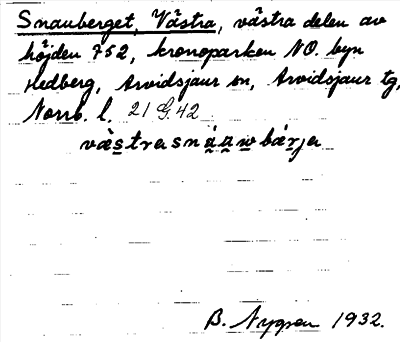 Snauberget, Västra, västra delen av
höjden 752, kronoparken NO. byn
Hedberg, Arvidsjaur sn, Arvidsjaur tg,
Norrb. l. 21 G. 42
västrasnáawbárja
B. Nygren 1932.